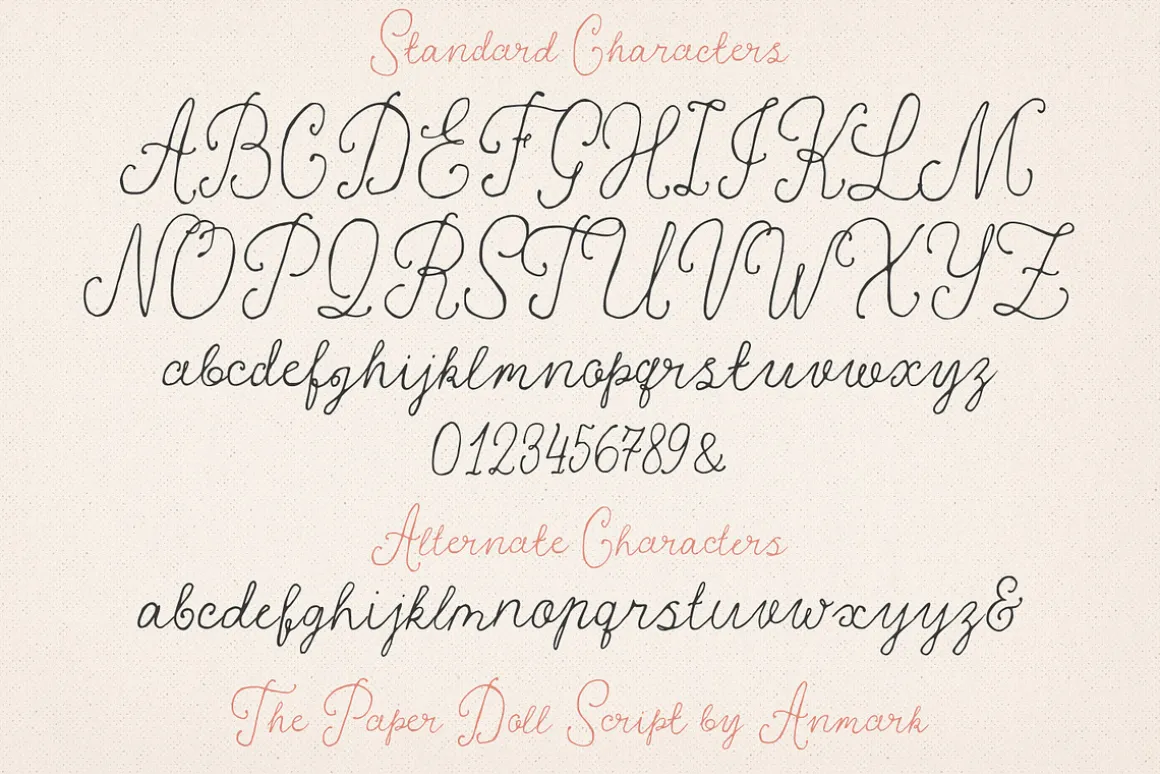 Standard Characters
ABCDEFGHIJKLM
NOPQRSTUVWXYZ
abcdefghijklmnopqrstuvwxyz
0123456789&
Alternate Characters
abcdefghijklmnopqrstuvwxyyz&
The Paper Doll Script by Anmark